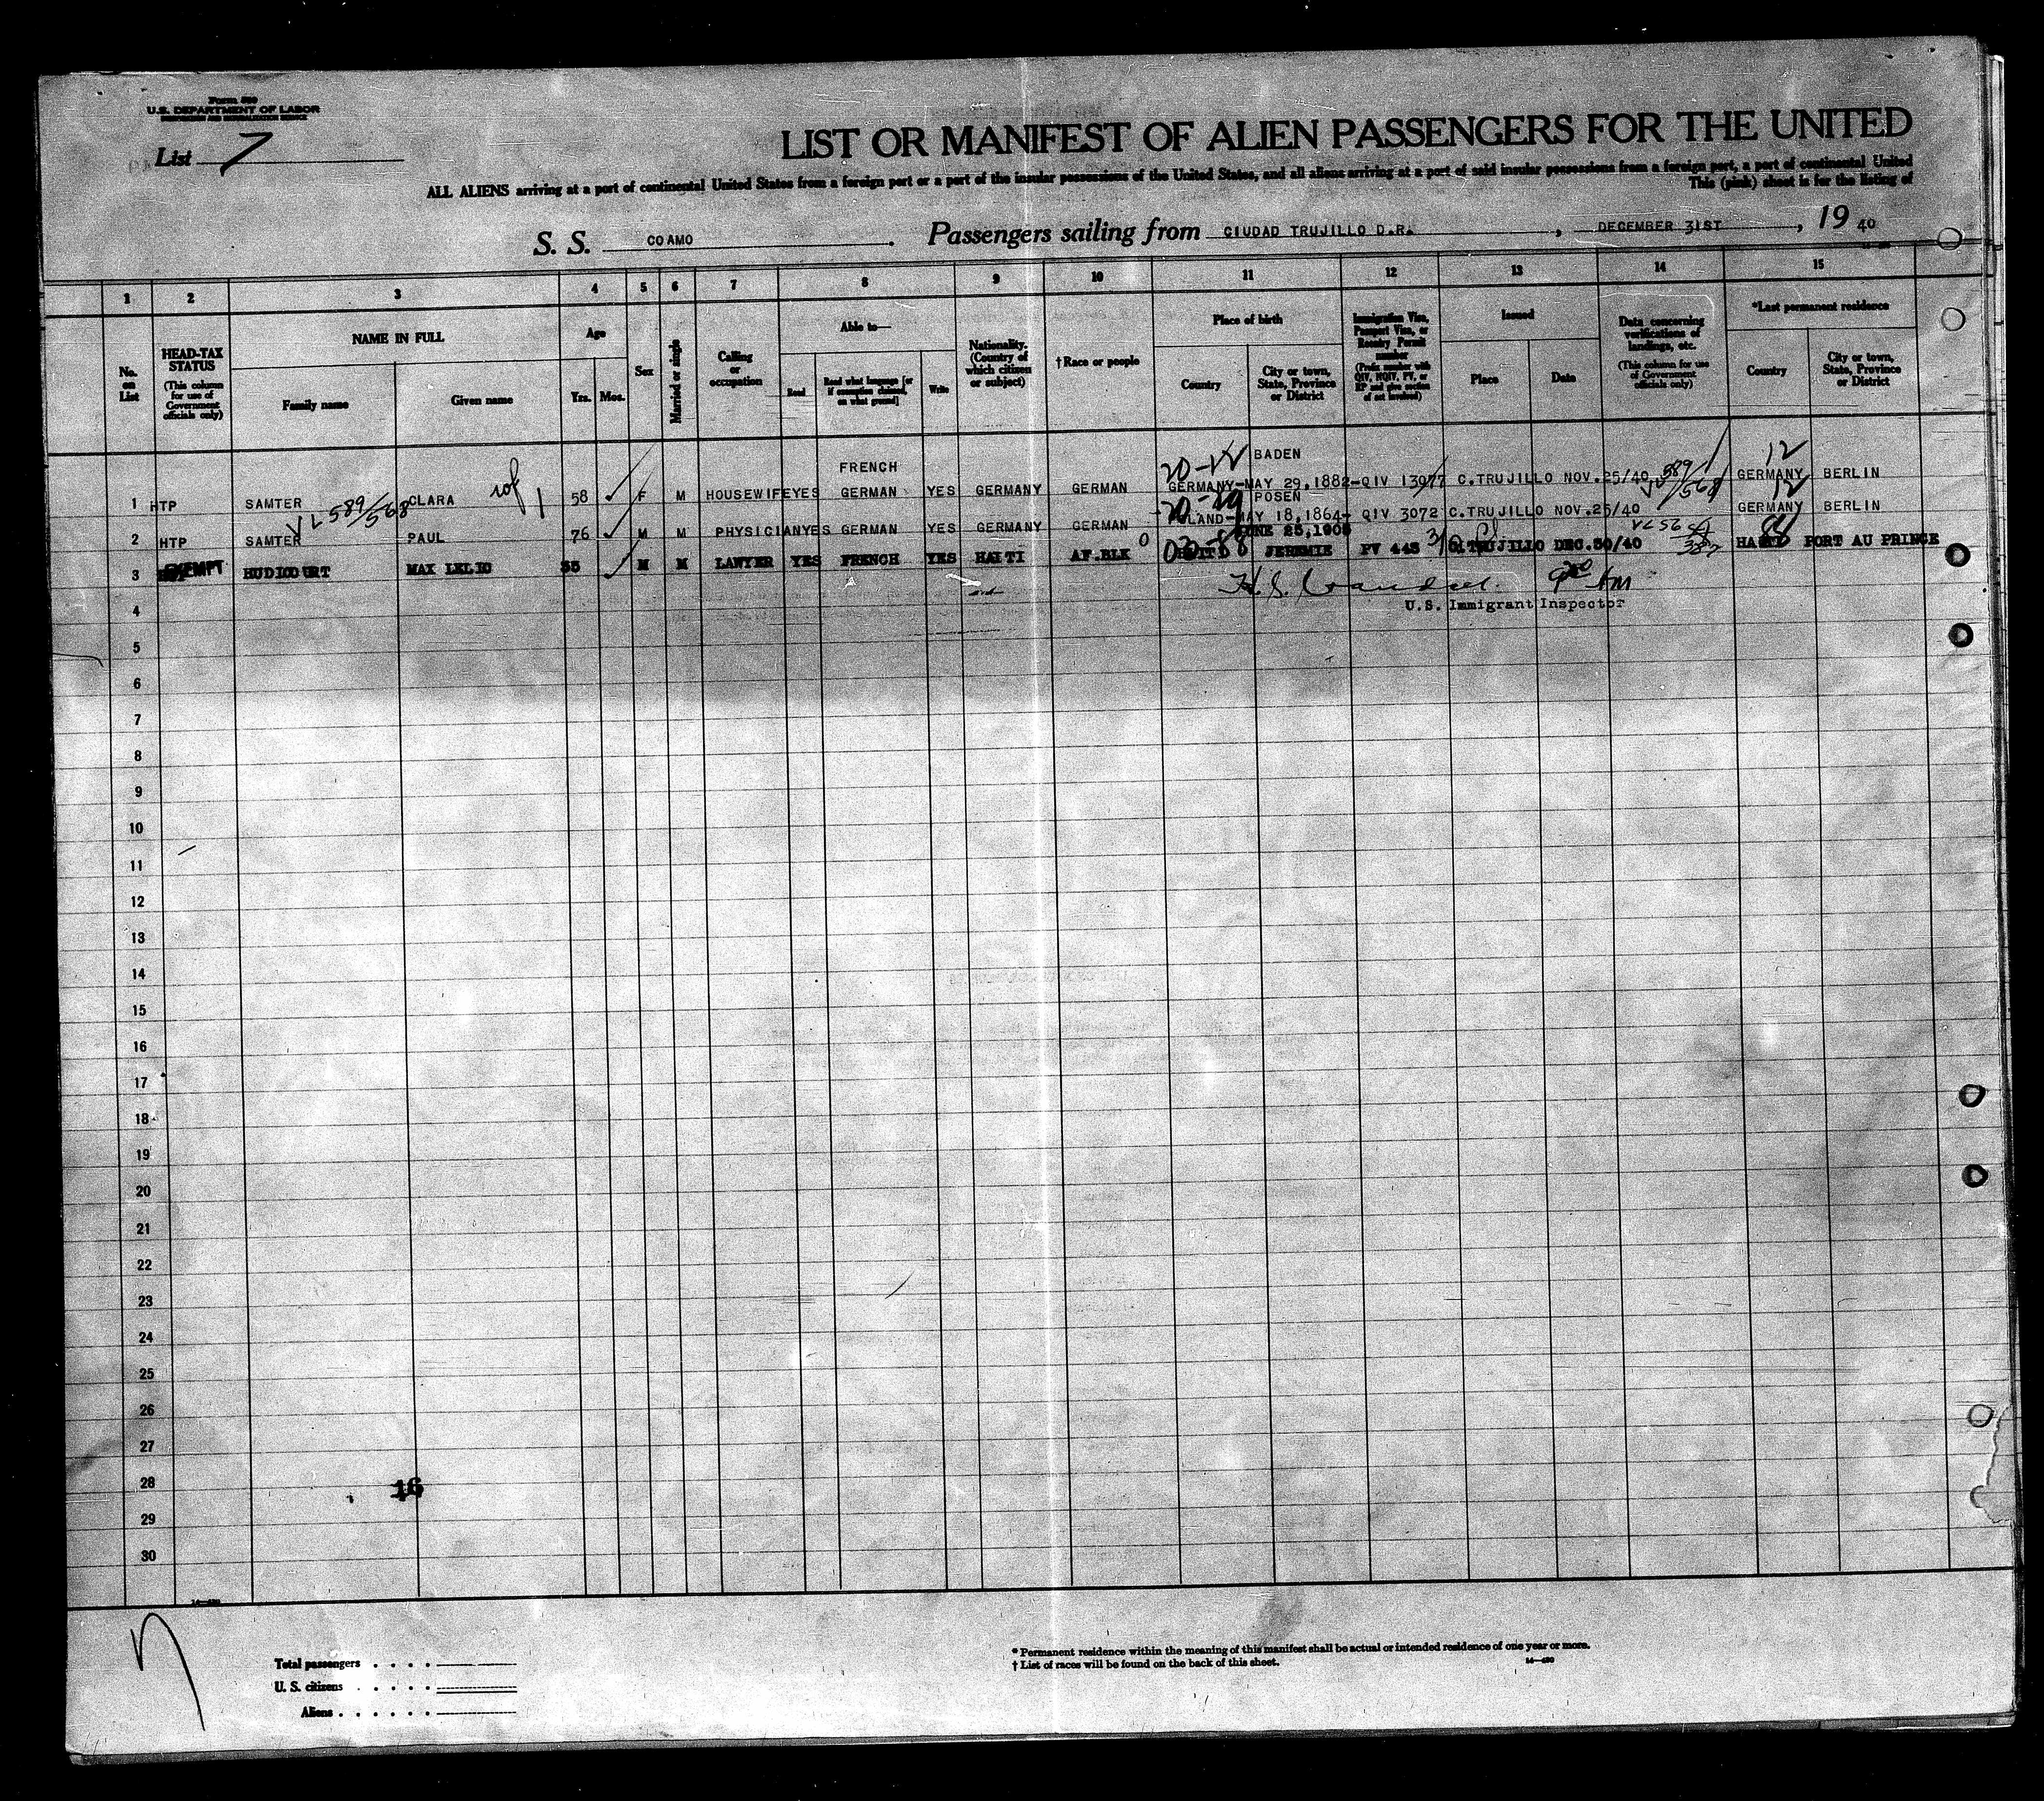 Form 500
U.S. DEPARTMENT OF LABOR
IMMIGRATION AND NATURALIZATION SERVICE
List 7
LIST OR MANIFEST OF ALIEN PASSENGERS FOR THE UNITED
ALL ALIENS arriving at a port of continental United States from a foreign port or a port of the insular possessions of the United States, and all aliens arriving at a port of said insular possessions from a foreign port, a port of continental United
This (pink) sheet is for the listing of
S. S. COAMO . Passengers sailing from CIUDAD TRUJILLO D.R. , DECEMBER 31ST , 19 40
1 2 3 4 5 6 7 8 9 10 11 12 13 14 15
No. on List
HEAD-TAX STATUS
(This column for use of Government officials only)
NAME IN FULL
Family name
Given name
Age
Yrs. Mos.
Sex
Married or single
Calling or occupation
Able to—
Read
Read what language [or if exemption claimed, on what ground]
Write
Nationality. (Country of which citizen or subject)
† Race or people
Place of birth
Country
City or town, State, Province or District
Immigration Visa, Passport Visa, or Reentry Permit number
(Prefix number with QIV, NQIV, PV, or RP and give section of act involved)
Issued
Place
Date
Data concerning verifications of landings, etc.
(This column for use of Government officials only)
*Last permanent residence
Country
City or town, State, Province or District
FRENCH 20- BADEN 12
1 HTP SAMTER CLARA 58 F M HOUSEWIFE YES GERMAN YES GERMANY GERMAN GERMANY-MAY 29, 1882-QIV 13077 C.TRUJILLO NOV.25/40 VL 589/568 GERMANY BERLIN
VL 589/568 20-29 POSEN 12
2 HTP SAMTER PAUL 76 M M PHYSICIAN YES GERMAN YES GERMANY GERMAN POLAND-MAY 18, 1864- QIV 3072 C.TRUJILLO NOV.25/40 GERMANY BERLIN
JUNE 25, 1905
3 EXEMPT HUDICOURT MAX LELIO 35 M M LAWYER YES FRENCH YES HAITI AF.BLK HAITI JEREMIE PV 448 C.TRUJILLO DEC.30/40 HAITI PORT AU PRINCE
U.S. Immigrant Inspector
4
5
6
7
8
9
10
11
12
13
14
15
16
17
18
19
20
21
22
23
24
25
26
27
28 16
29
30
Total passengers . . . .
U. S. citizens . . . . .
Aliens . . . . . .
* Permanent residence within the meaning of this manifest shall be actual or intended residence of one year or more.
† List of races will be found on the back of this sheet.